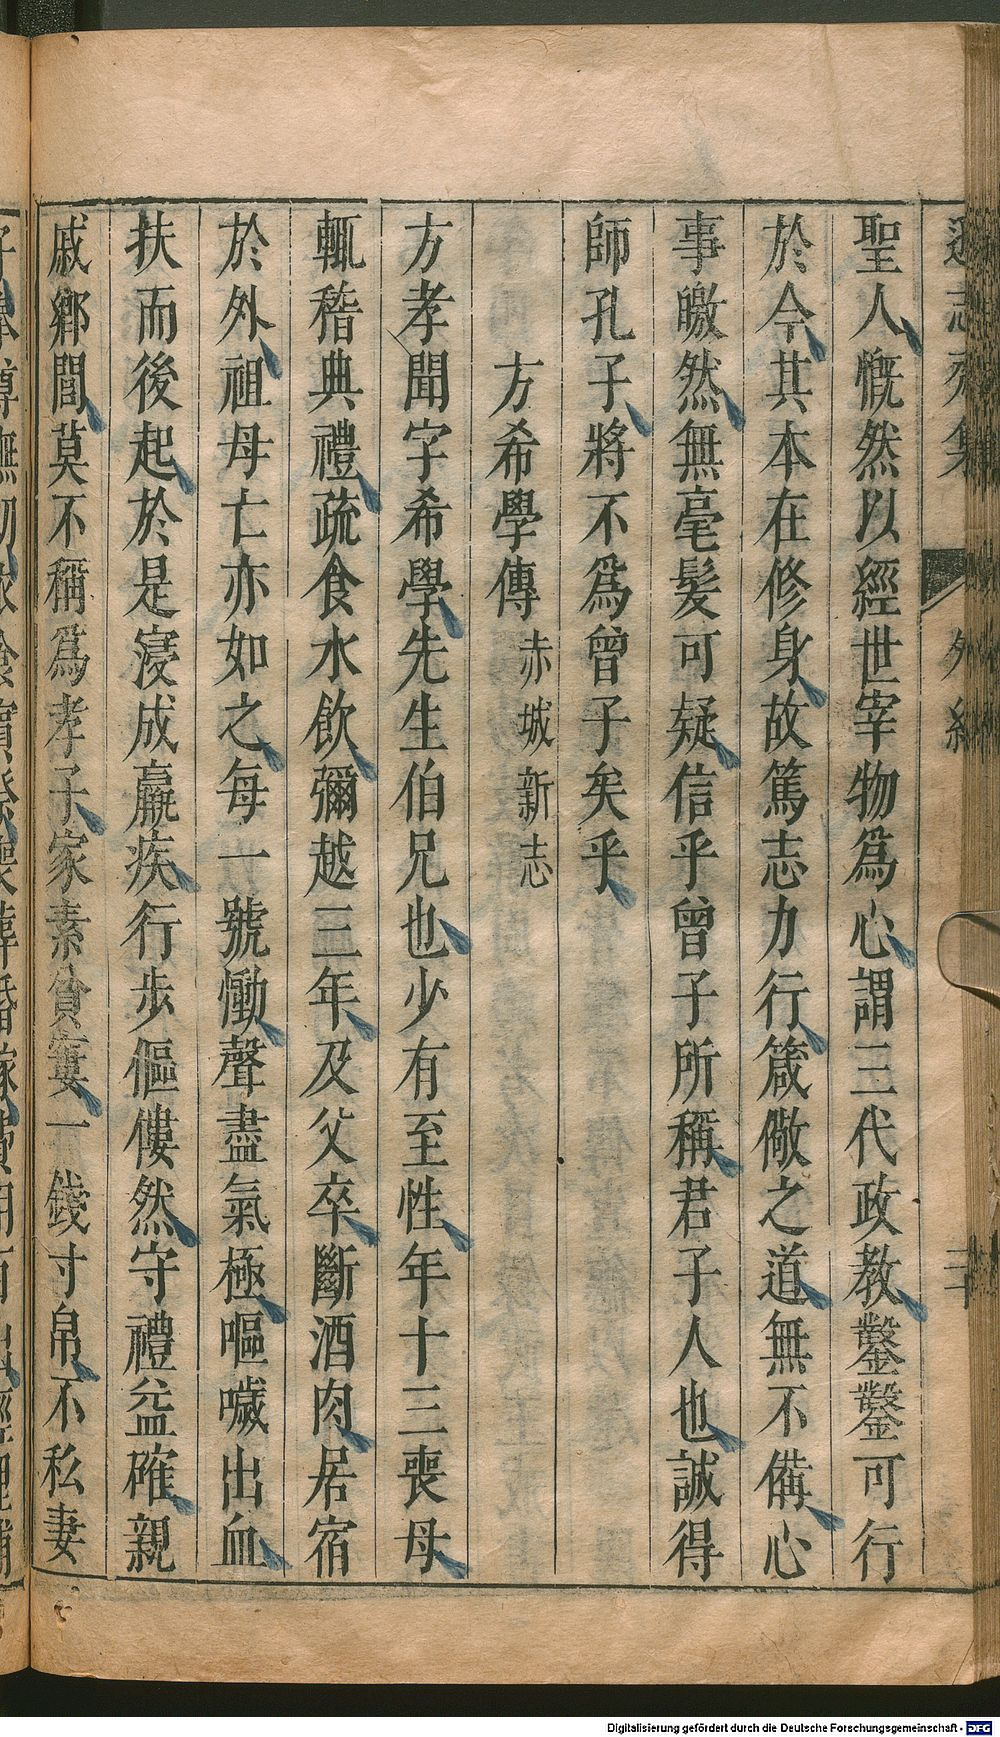 聖人慨然以經世宰物爲心謂三代政教鑿鑿可行
於今其本在修身故篤志力行箴儆之道無不備心
事皦然無毫髮可疑信乎曾子所稱君子人也誠得
師孔子將不爲曾子矣乎
方希學傳 赤城新志
方孝聞字希學先生伯兄也少有至性年十三喪母
輒稽典禮疏食水飲彌越三年及父卒斷酒肉居宿
於外祖母亡亦如之每一號慟聲盡氣極嘔噦出血
扶而後起於是寖成羸疾行步傴僂然守禮益確親
戚鄉閭莫不稱爲孝子家素貧窶一錢寸帛不私妻
志齋集 外紀
Digitalisierung gefördert durch die Deutsche Forschungsgemeinschaft - DFG